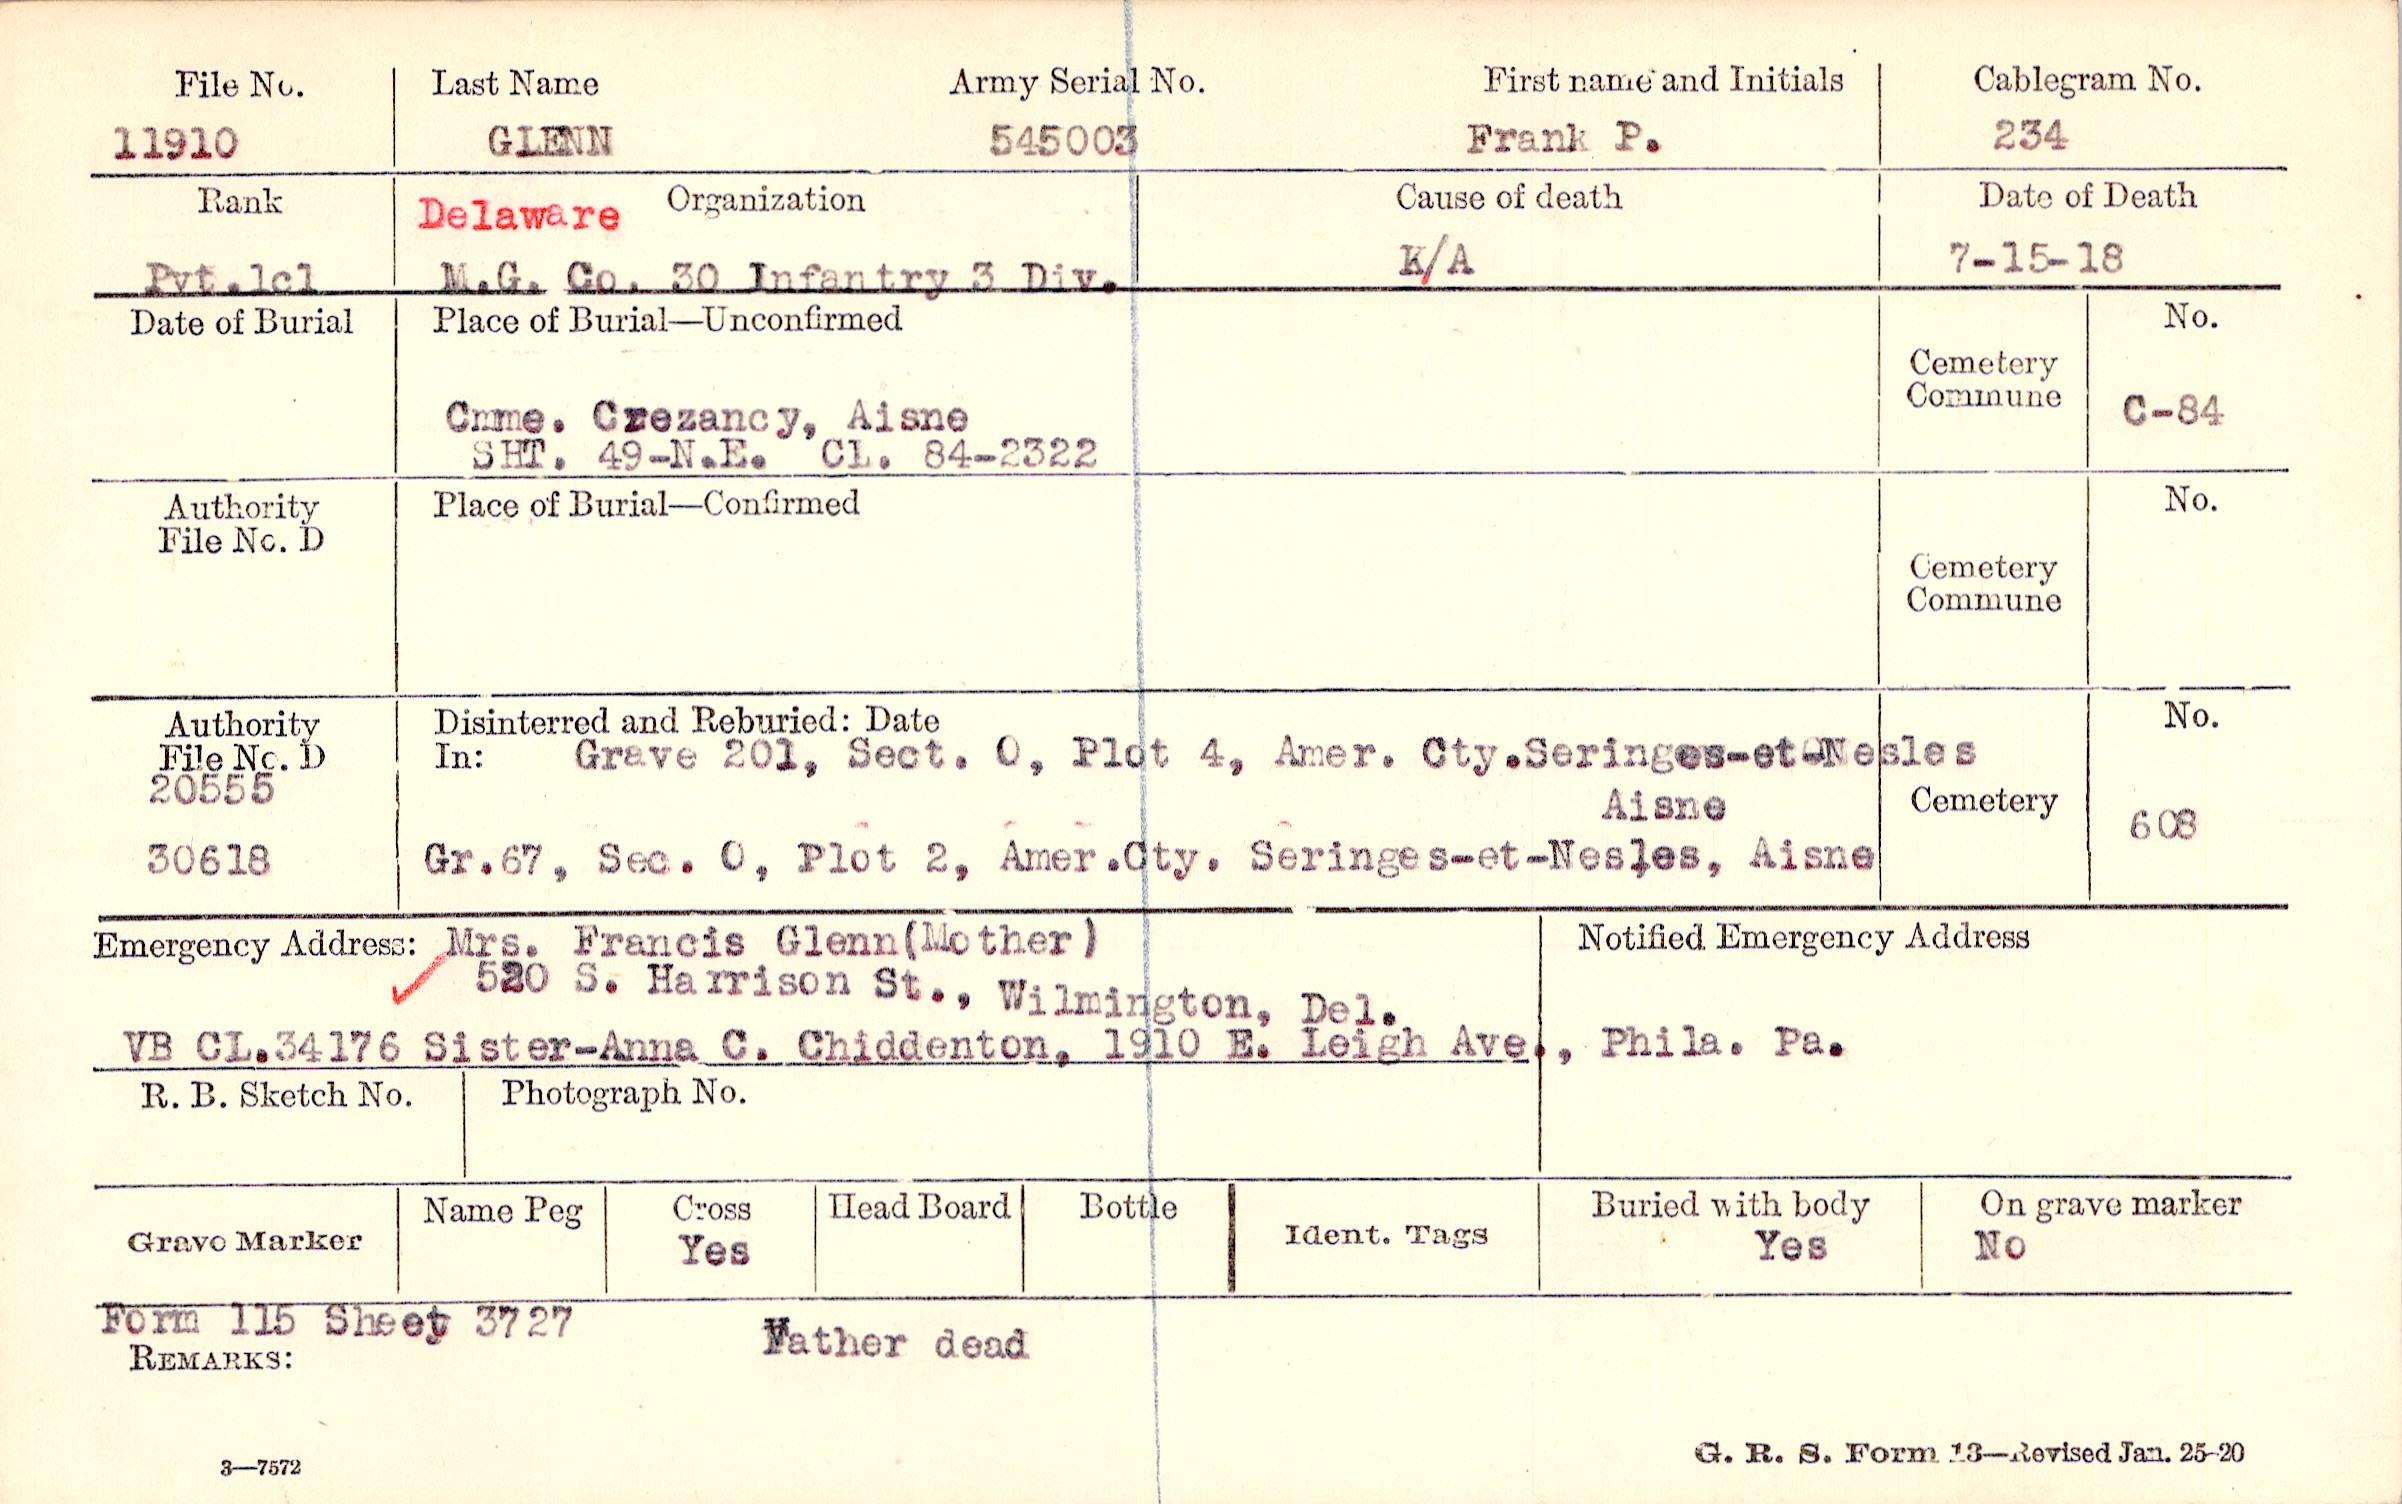 File No. Last Name Army Serial No. First name and Initials Cablegram No.
11910 GLENN 545003 Frank P. 234
Rank Delaware Organization Cause of death Date of Death
Pvt.1cl M.G. Co. 30 Infantry 3 Div. K/A 7-15-18
Date of Burial Place of Burial—Unconfirmed No.
Cemetery
Commune
Cmme. Crezancy, Aisne C-84
SHT. 49-N.E. CL. 84-2322
Authority Place of Burial—Confirmed No.
File No. D
Cemetery
Commune
Authority Disinterred and Reburied: Date No.
File No. D In: Grave 201, Sect. O, Plot 4, Amer. Cty.Seringes-et-Nesles
20555 Aisne Cemetery
608
30618 Gr.67, Sec. O, Plot 2, Amer.Cty. Seringes-et-Nesles, Aisne
Emergency Address: Mrs. Francis Glenn(Mother) Notified Emergency Address
520 S. Harrison St., Wilmington, Del.
VB CL.34176 Sister-Anna C. Chiddenton, 1910 E. Leigh Ave., Phila. Pa.
R. B. Sketch No. Photograph No.
Grave Marker Name Peg Cross Head Board Bottle Ident. Tags Buried with body On grave marker
Yes Yes No
Form 115 Sheet 3727 Father dead
REMARKS:
3—7572 G. R. S. Form 13—Revised Jan. 25-20